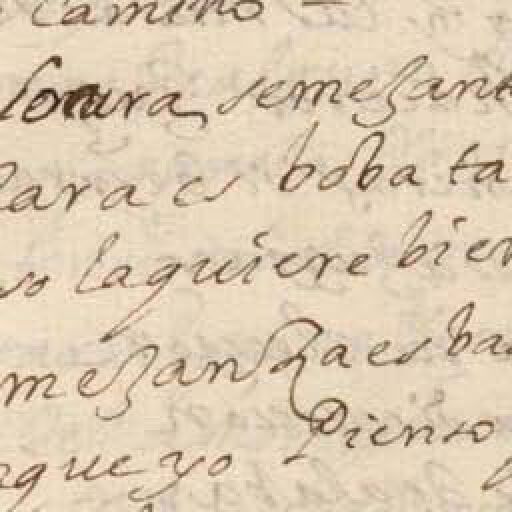 camino
locura semejant
lara es boba ta
so la quiere bien
mejanza es bas
rque yo Pienso